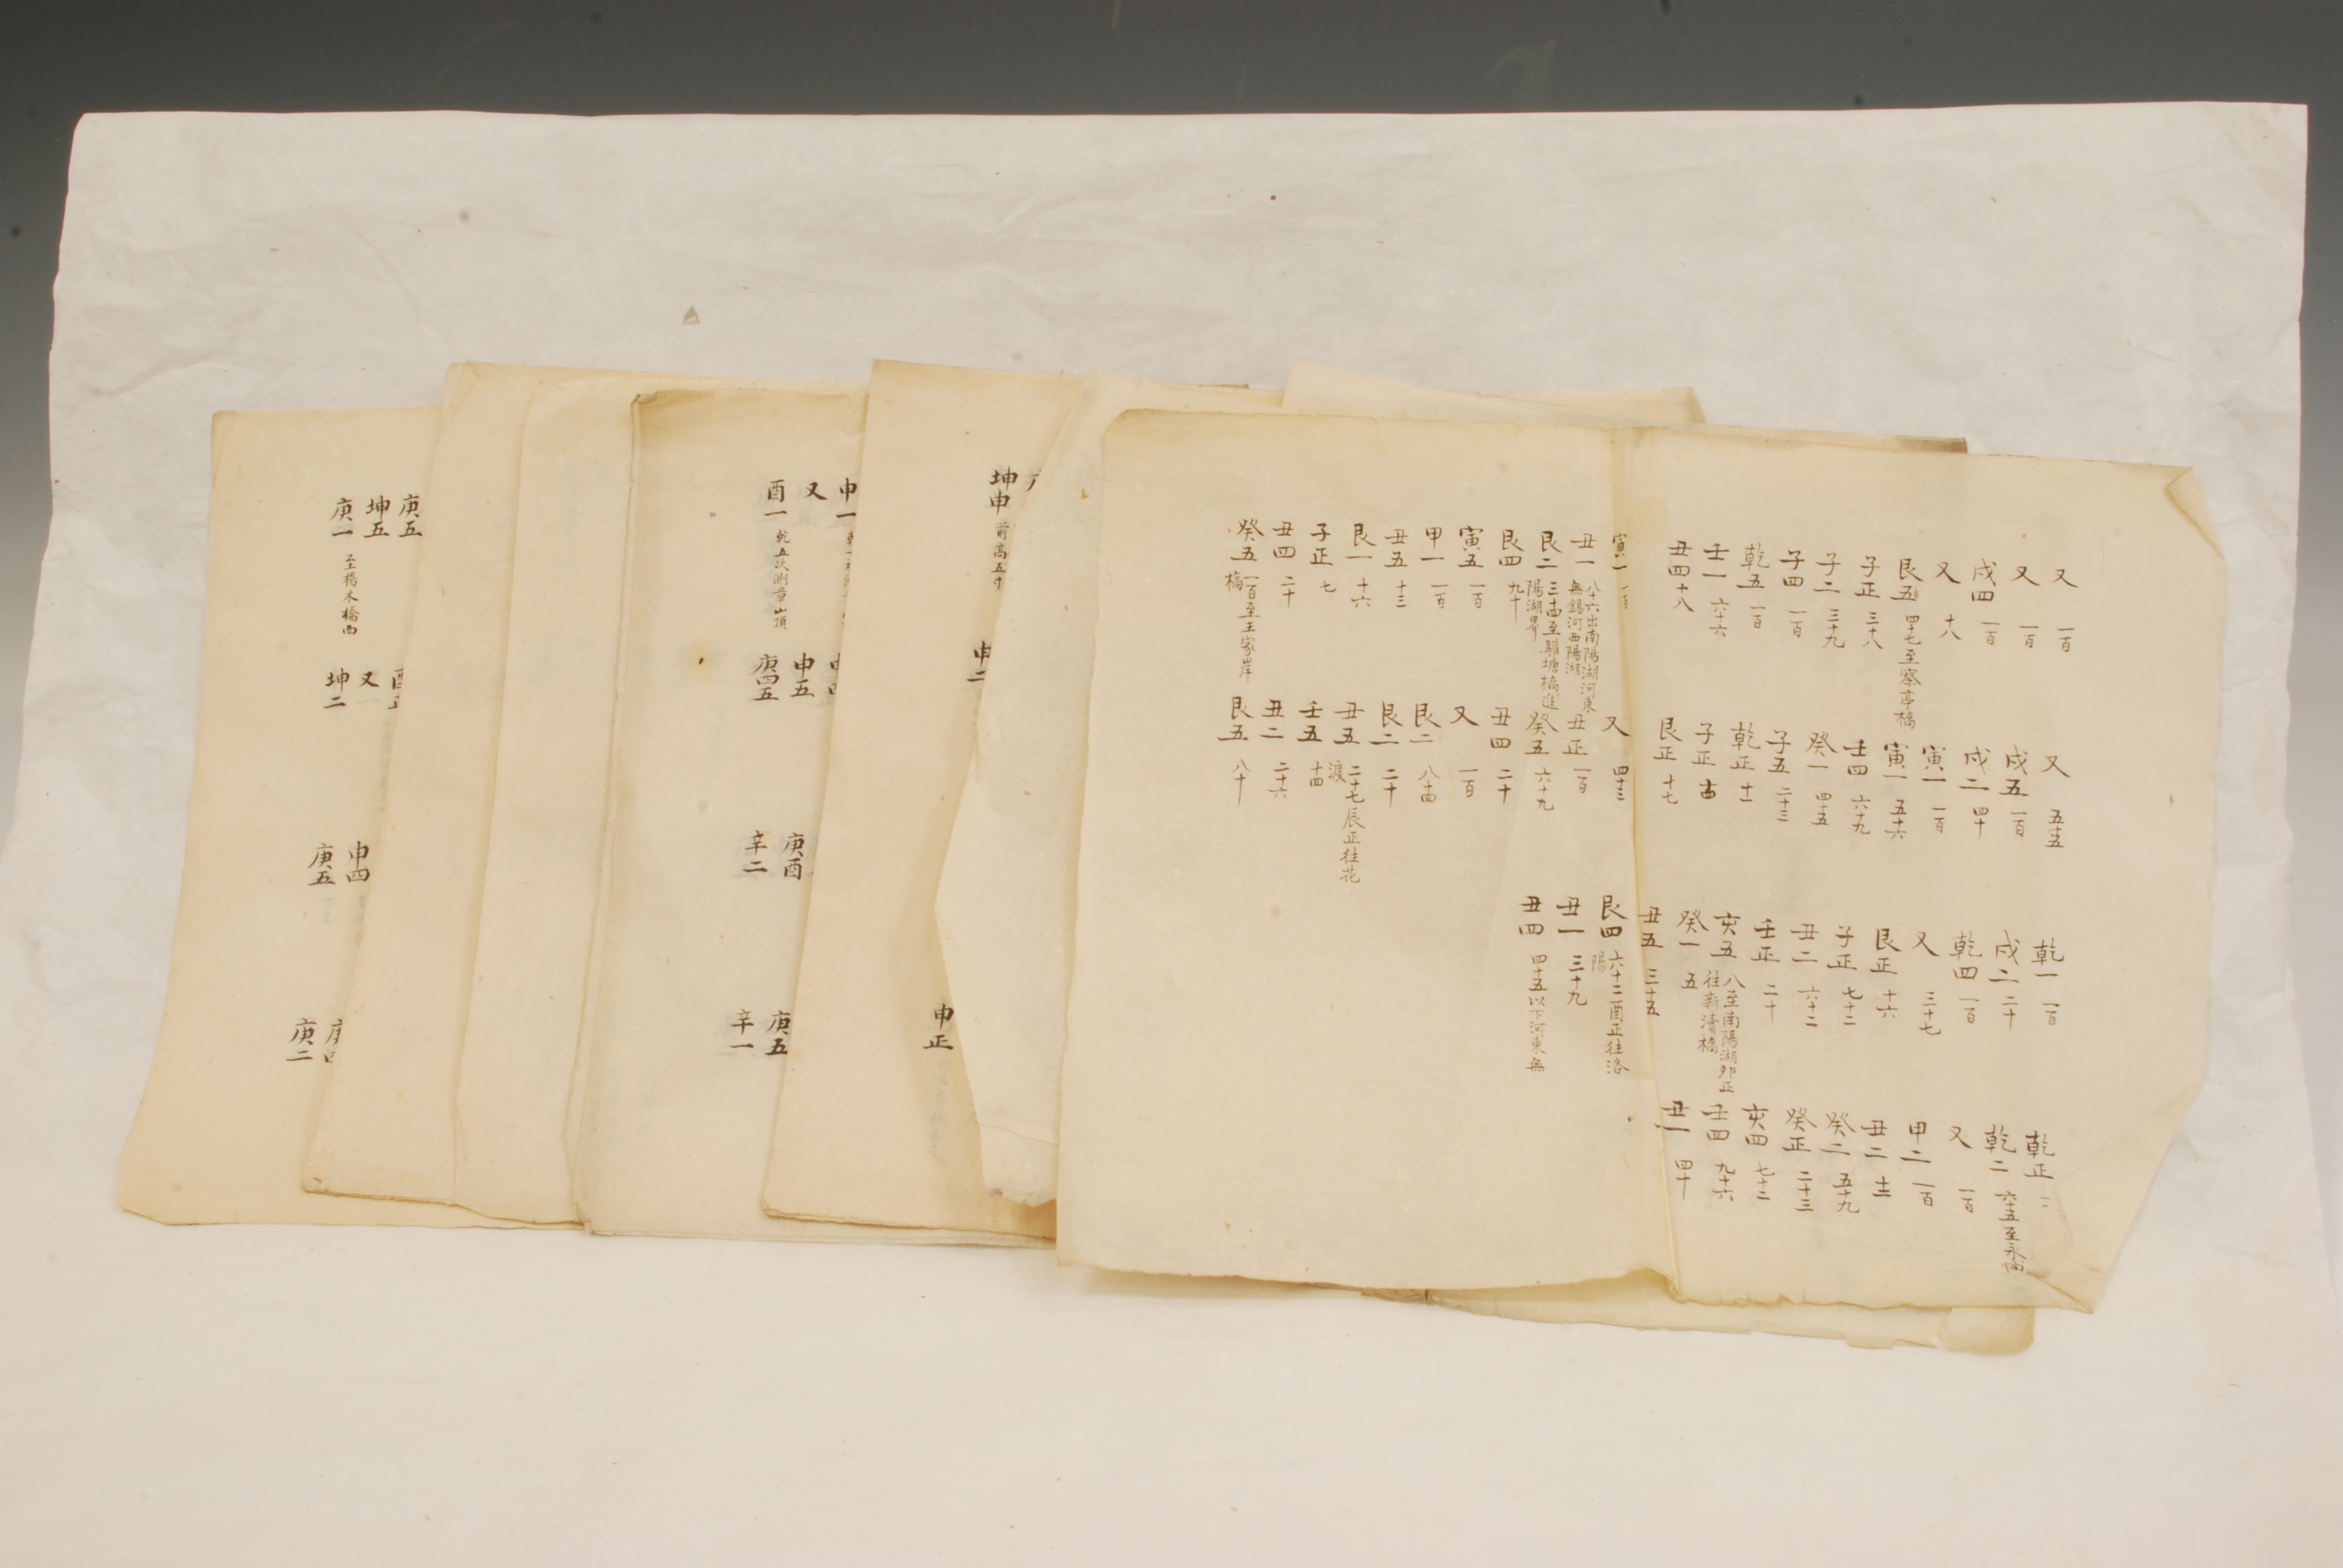 又 一百
又 一百
戌四 一百
又 十八
艮五 四十七至察亭橋
子正 三十八
子二 三十九
子四 一百
乾五 一百
壬一 六十六
丑四 十八
又 五十五
戌五 一百
戌二 四十
寅一 一百
寅一 五十六
壬四 六十九
癸一 四十五
子五 二十三
乾正 十一
子正 十四
艮正 十七
乾一 一百
戌二 二十
乾四 一百
又 三十七
艮正 十六
子正 七十二
丑二 六十二
壬正 二十
亥五 八至南陽湖卯正往新濟橋
癸一 五
丑五 三十五
乾正
乾二 六十五至永
又 一百
甲二 一百
丑二 十三
癸二 五十九
癸正 二十三
亥四 七十二
壬四 九十六
丑一 四十
寅一 一百
丑一 八十六出南陽湖河東無錫河西陽湖
艮二 三十四至雞塘橋進陽湖界
艮四 九十
寅五 一百
甲一 一百
丑五 十三
艮一 十六
子正 七
丑四 二十
癸五 一百至王家岸橋
又 四十三
丑正 一百
癸五 六十九
丑四 二十
又 一百
艮二 八十四
艮二 二十
丑五 二十七辰正往花渡
壬五 十四
丑二 二十六
艮五 八十
艮四 六十二酉正往洛陽
丑一 三十九
丑四 四十五以下河東無
坤申 前高五寸
申二
申正
申一
又
酉一 乾五次測章山頂
申五
庚四五
庚酉
辛二
庚五
辛一
庚五
坤五
庚一 至楊木橋西
又
坤二
申四
庚五
庚二